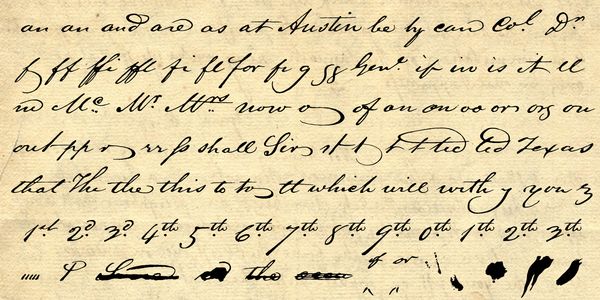 an an and are as at Austin be by can Col. Dr.
f ff ffi ffl fi fl for fr g gg Genl. if in is it ll
m Mc. Mr. Mrs. now o of an on oo or org ou
out pp r rr ss shall Sir st t t t ted ted Texas
that The the this to to tt which will with y you z
1st. 2d. 3d. 4th 5th 6th 7th 8th 9th 0th 1th 2th 3th
P the of or